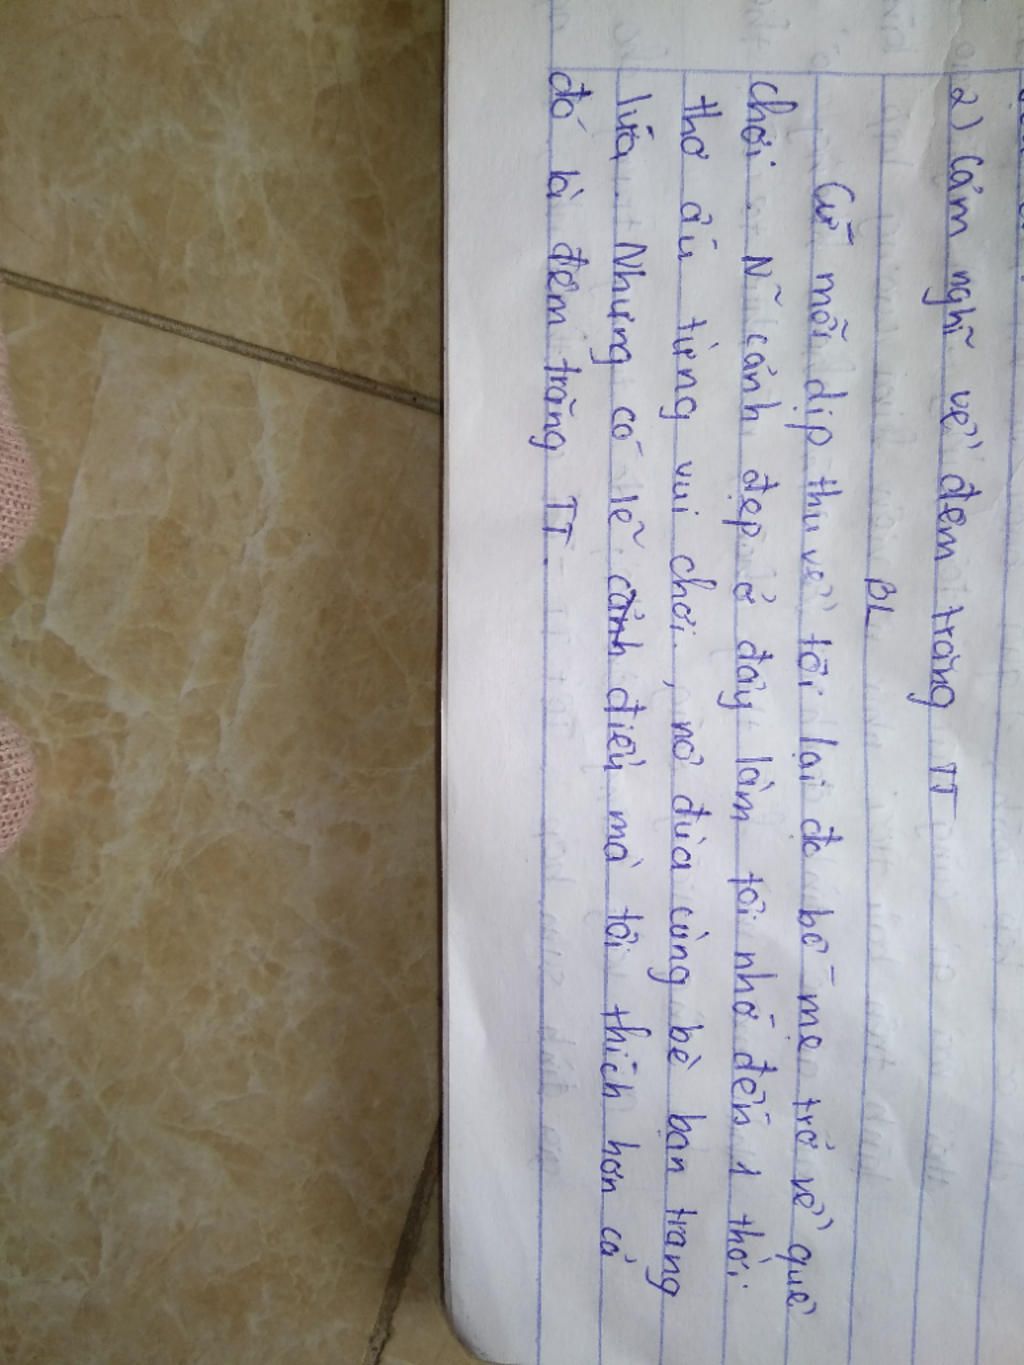 2) Cảm nghĩ về đêm trăng TT
BL
Cứ mỗi dịp thu về tôi lại đc bố mẹ trở về quê
chơi. N~ cảnh đẹp ở đây làm tôi nhớ đến 1 thời
thơ ấu từng vui chơi, nô đùa cùng bè bạn trang
lứa. Nhưng có lẽ cảnh điều mà tôi thích hơn cả
đó là đêm trăng TT.